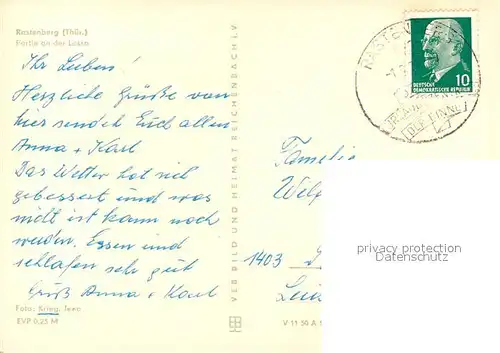 Rastenberg (Thür.)
Partie an der Lossa
Ihr Lieben!
Herzliche Grüße von
hier senden Euch allen
Anna + Karl
Das Wetter hat sich
gebessert und was
nicht ist kann noch
werden. Essen und
schlafen sehr gut
Gruß Anna + Karl
Foto: Krieg, Jena
EVP 0,25 M
VEB BILD UND HEIMAT REICHENBACH I. V
V 11 50 A
RASTENBERG
DER FINNE
10
DEUTSCHE
DEMOKRATISCHE REPUBLIK
Familie
1403
privacy protection
Datenschutz